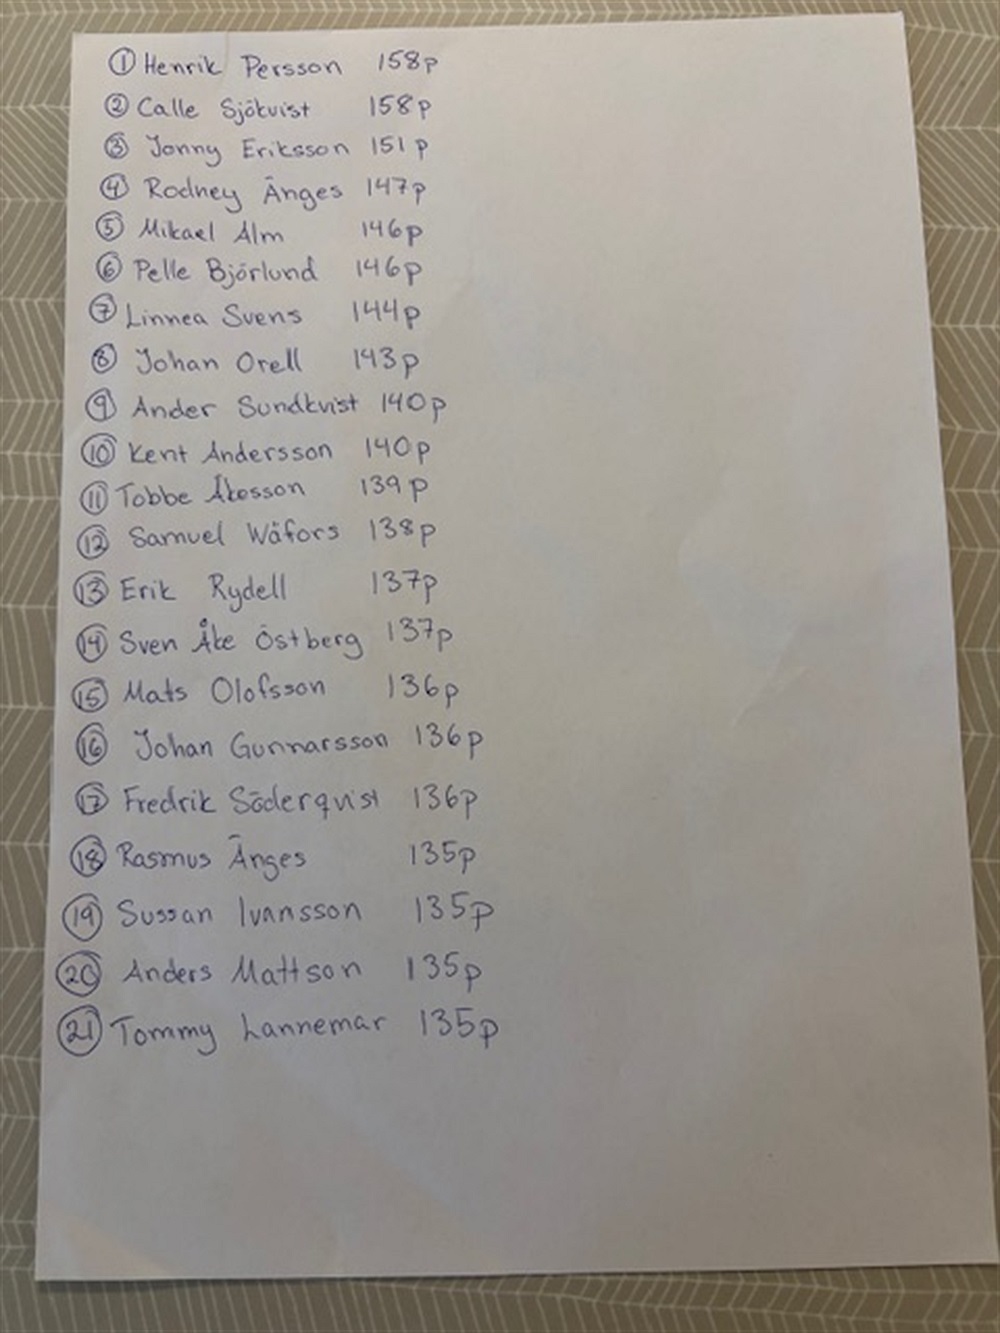 ① Henrik Persson 158p
② Calle Sjökvist 158p
③ Jonny Eriksson 151p
④ Rodney Änges 147p
⑤ Mikael Alm 146p
⑥ Pelle Björlund 146p
⑦ Linnea Svens 144p
⑧ Johan Orell 143p
⑨ Ander Sundkvist 140p
⑩ Kent Andersson 140p
⑪ Tobbe Åkesson 139p
⑫ Samuel Wåfors 138p
⑬ Erik Rydell 137p
⑭ Sven Åke Östberg 137p
⑮ Mats Olofsson 136p
⑯ Johan Gunnarsson 136p
⑰ Fredrik Söderqvist 136p
⑱ Rasmus Änges 135p
⑲ Sussan Ivansson 135p
⑳ Anders Mattson 135p
㉑ Tommy Lannemar 135p